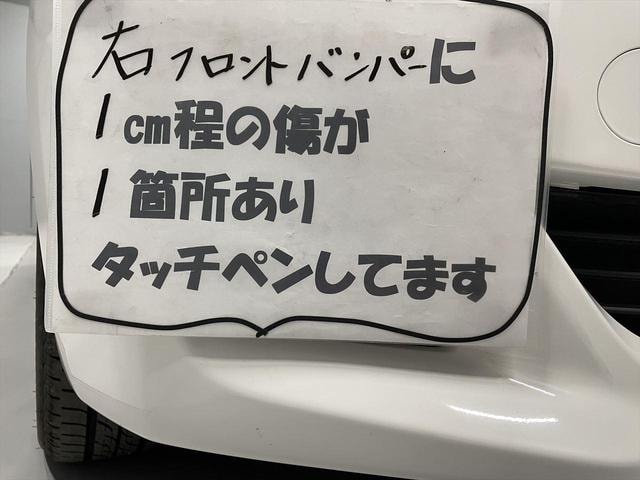 右フロントバンパーに
1cm程の傷が
1箇所あり
タッチペンしてます